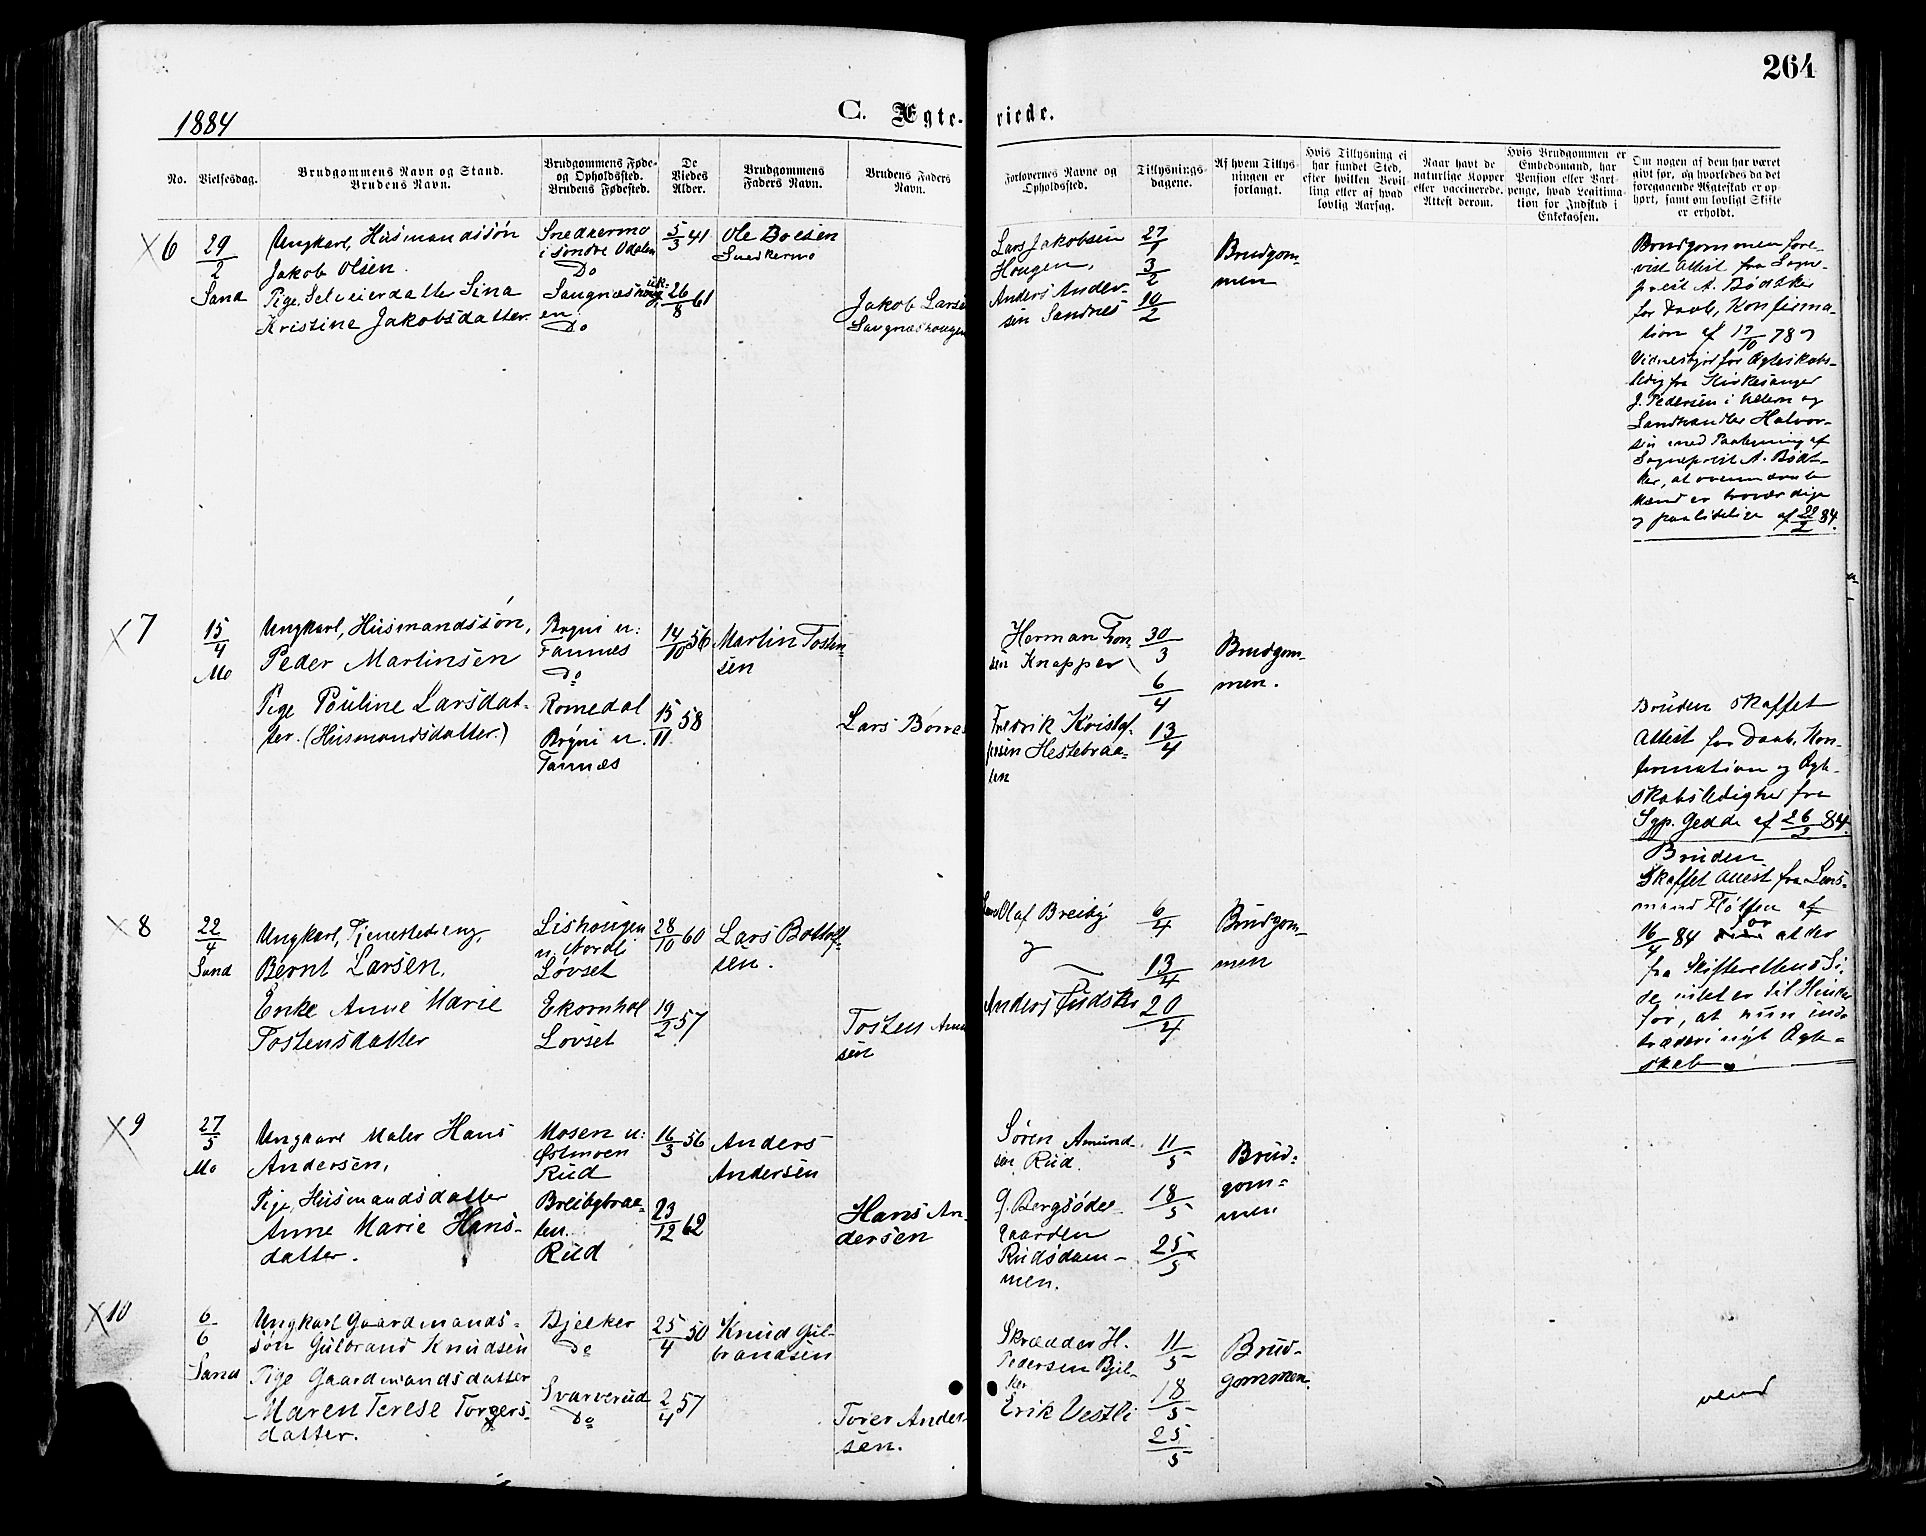 264
1884
C. Ægte-
viede.
No.
Vielsesdag.
Brudgommens Navn og Stand.
Brudens Navn.
Brudgommens Føde-
og Opholdssted.
Brudens Fødested.
De
Viedes
Alder.
Brudgommens
Faders Navn.
Brudens Faders
Navn.
Forlovernes Navne og
Opholdssted.
Tillysnings-
dagene.
Af hvem Tillys-
ningen er
forlangt.
Hvis Tillysning ei
har fundet Sted,
efter hvilken Bevil-
ling eller af hvad
lovlig Aarsag.
Naar havt de
naturlige Kopper
eller vaccinerede.
Attest derom.
Hvis Brudgommen er
Embedsmand, har
Pension eller Vart-
penge, hvad Legitima-
tion for Indskud i
Enkekassen.
Om nogen af dem har været
givt før, og hvorledes da det
foregaaende Ægteskab er op-
hørt, samt om lovligt Skifte
er erholdt.
X 6
29/2
Sand
Ungkarl, Husmandssøn
Jakob Olsen.
Pige, Selveierdatter Sina
Kristine Jakobsdatter.
Snedkermo
i søndre Odalen
Do
Do
5/3 41
26/8 61
Ole Boesen
Snedkermo
Jakob Larse
Saugnæshougen
Lars Jakobsen
Hougen,
Anders Ander-
sen Sandnes
27/1
3/2
10/2
Brudgom-
men
Brudgommen fore-
vist Attest fra Sogne-
prest A. Bødtker
for Daab, Konfirma-
tion af 17/10 78 og
Vidnesbyrd for Ægteskabs-
ledig fra Kirkesanger
J. Pedersen i
Landhandler Halvor-
sen med Paategning af
Sogneprest A. Bødt-
ker, at ovennævnte
Mænd er troværdige
og paalidelige af 22/2 84.
X 7
15/4
Mo
Ungkarl, Husmandssøn,
Peder Martinsen
Pige Pauline Larsdat-
ter. (Husmandsdatter.)
Bryni u:
Tannæs
Do
Romedal
Bryni u.
Tannæs
14/10 56
15/11 58
Martin Tosten-
sen
Lars Børre
Herman Tron-
sen Knapper
Fredrik Kristof-
fersen Hestebraa-
ten
30/3
6/4
13/4
Brudgom-
men.
Bruden skaffet
Attest for Daab, Kon-
firmation og Ægte-
skabsledighed fra
Sgp. Gedde af 26/2 84.
X 8
22/4
Sand
Ungkarl, Tjenestedreng,
Bernt Larsen,
Enke Anne Marie
Tostensdatter
Lishougen
u. Nordli
Løvset
Ekornhol
Løvset
28/10 60
19/2 57
Lars Bottolf-
sen.
Tosten Amu
sen
Olaf Breiby
og
Anders
6/4
13/4
20/4
Brudgom-
men
Bruden
skaffet Attest fra Lens-
mand Fløtten af
16/4 84 for at der
fra Skifterettens Si-
de intet er til Hinder
for, at hun ind-
træder i nyt Ægte-
skab.
X 9
27/5
Mo
Ungkarl Maler Hans
Andersen,
Pige, Husmandsdatter
Anne Marie Hans-
datter.
Mosen u:
Østmoen
Rud
Breibybraa-
ten.
Rud
16/3 56
23/12 62
Anders
Andersen
Hans An-
dersen
Søren Amund-
sen Rud.
Rudsdam-
men.
11/5
18/5
25/5
Brud-
gom-
men
X 10
6/6
Sand
Ungkarl Gaardmands-
søn Gulbrand Knudsen
Pige Gaardmandsdatter
Maren Terese Torgers-
datter.
Bjelker
Do
Svarverud
Do
25/4 50
2/4 57
Knud Gul-
brandsen
Torer Ander-
sen.
Skrædder H.
Pedersen Bjel-
ker
Erik Vestli
11/5
18/5
25/5
Brud-
gommen.
vend